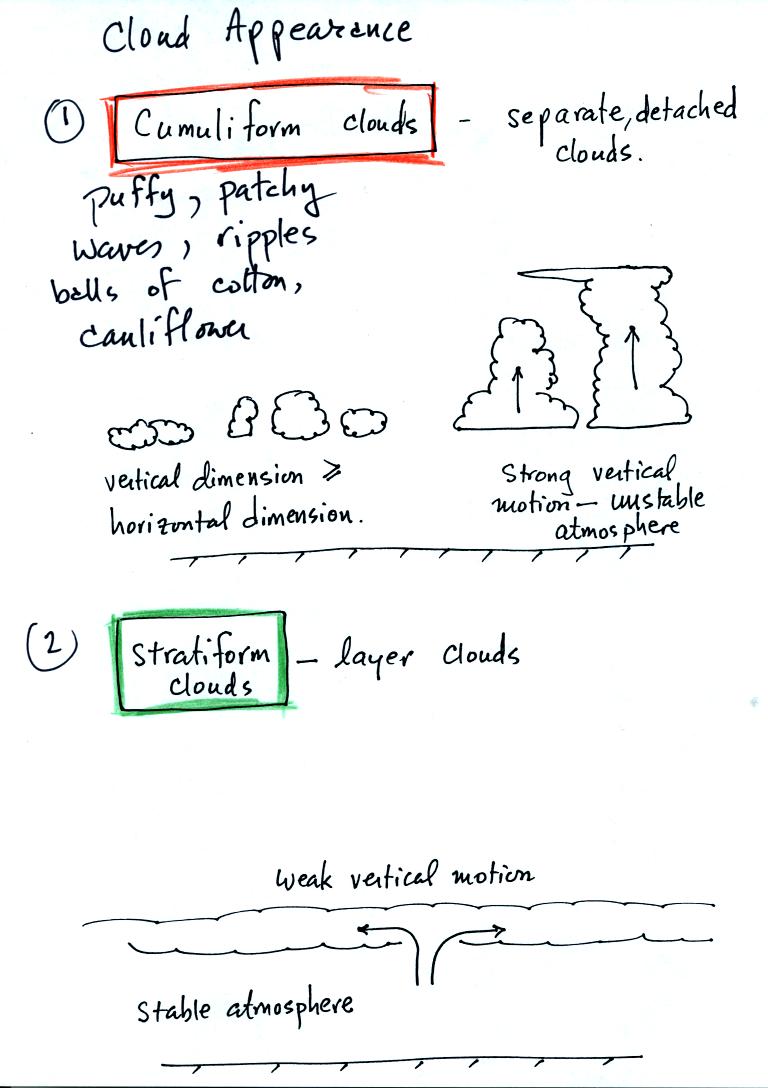 Cloud Appearance
① Cumuliform clouds - separate, detached
clouds.
puffy, patchy
waves, ripples
balls of cotton,
cauliflower
vertical dimension ≥
horizontal dimension.
Strong vertical
motion - unstable
atmosphere
② Stratiform
clouds
- layer clouds
Weak vertical motion
Stable atmosphere